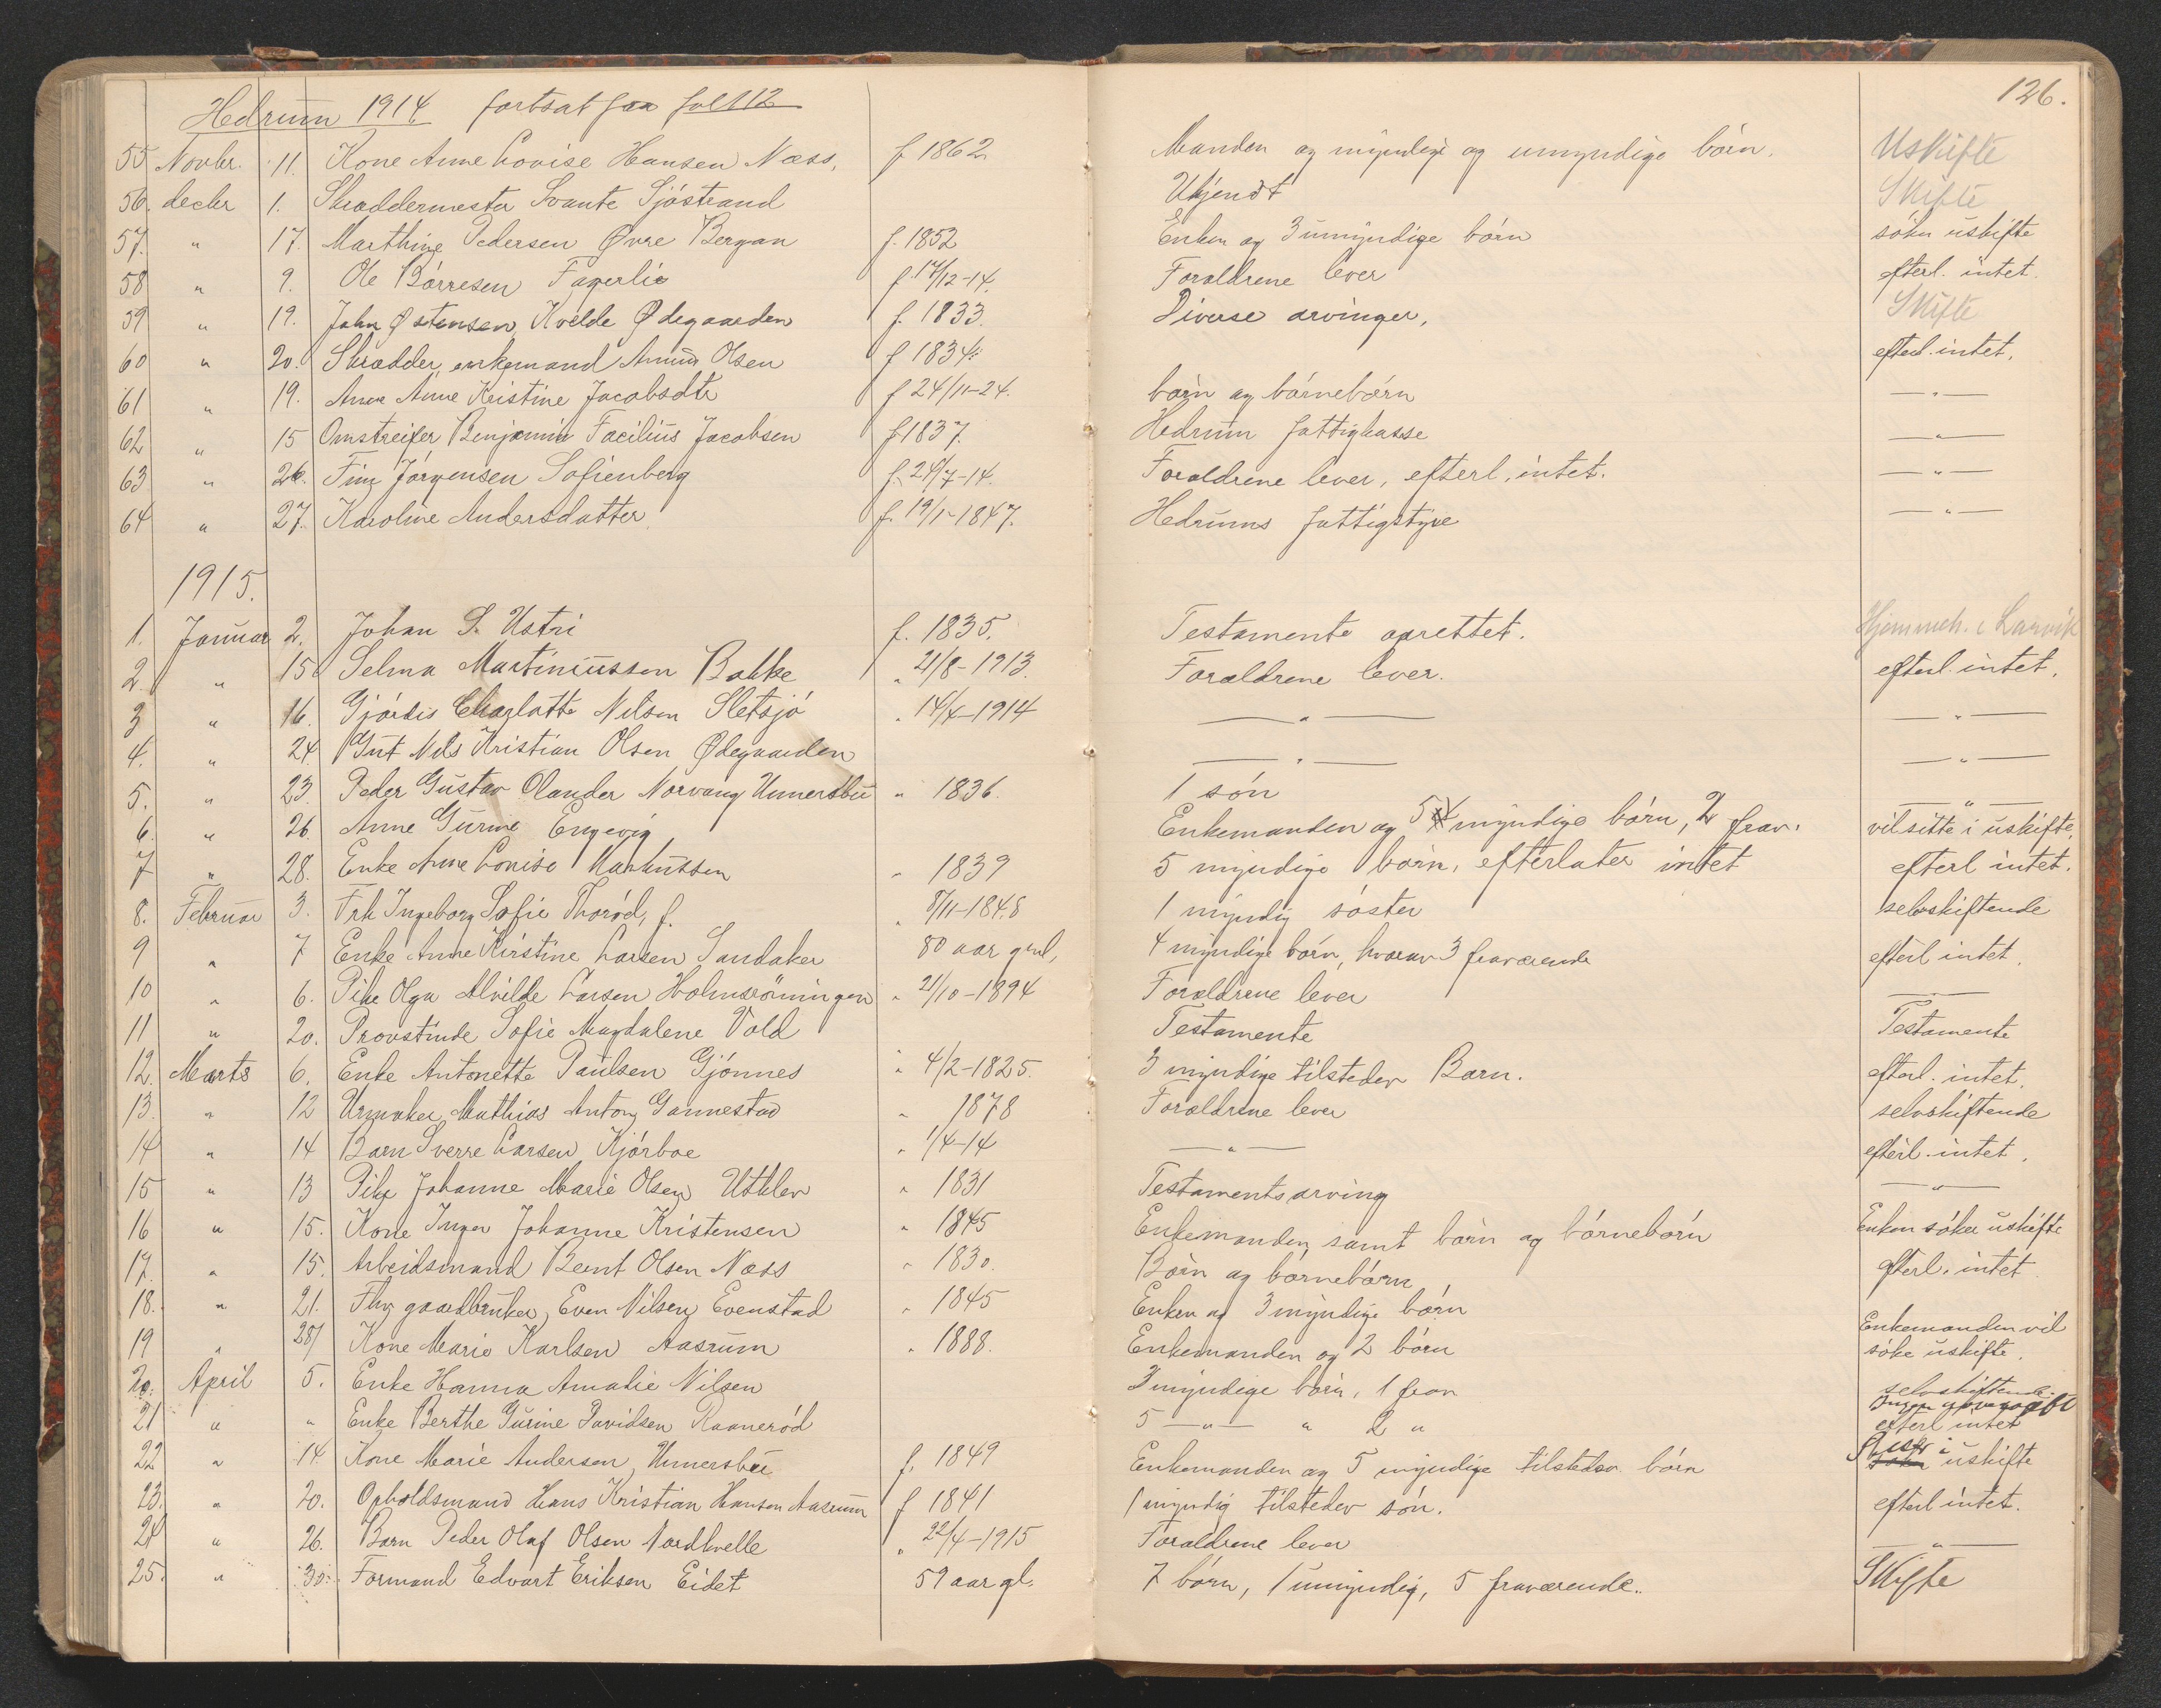 126.
Hedrum 1914 fortsat fra fol 112
55 Novbr. 11. Kone Anne Lovise Hansen Næss, f 1862 Manden og myndige og umyndige börn. Uskifte
56. decbr 1. Skræddermester Svante Sjöstrand Ukjendt Skifte
57. " 17. Marthine Pedersen Øvre Bergan f. 1852 Enken og 3 umyndige börn söker uskifte
58 " 9. Ole Börresen Fagerlie f 17/12-14. Foræeldrene lever efterl. intet.
59 " 19. John Østensen, Kvelde Ødegaarden f. 1833. Diverse arvinger, Skifte
60 " 20. Skrædder, enkemand Amund Olsen f 1834 efterl. intet.
61 " 19. Anne Kristine Jacobsdtr f 24/11-24. börn og börnebörn — " —
62 " 15 Omstreifer Benjamin Facilius Jacobsen f 1837. Hedrum fattigkasse — " —
63 " 26. Finn Jörgensen Sofienberg f. 24/7-14. Forældrene lever, efterl. intet. — " —
64 " 27. Karoline Andersdatter f. 19/1-1847. Hedrums fattigstyre — " —
1915.
1. Januar 2. Johan S. Ustri f. 1835. Testamente oprettet. Hjemmeh. i Larvik
2. " 15 Selma Martiniussen Bakke " 21/8-1913. Forældrene lever. efterl. intet.
3 " 16. Gjördis Charlotte Nilsen Sletsjö " 14/4-1914 — " — — " —
4. " 24 Gut Nils Kristian Olsen Ødegaarden — " — — " —
5. " 23. Peder Gustav Olander Norvang Unnersbu " 1836. 1 sön — " —
6. " 26. Anne Gurine Engevig Enkemanden og 5 myndige börn, 2 frav. vil sitte i uskifte.
7 " 28. Enke Anne Lovise Markussen " 1839 5 myndige börn, efterlater intet efterl intet.
8. Februar 3. Frk Ingeborg Sofie Thoröd, f. " 8/11-1848 1 myndig söster selvskiftende
9 " 7 Enke Anne Kirstine Larsen Sandaker 80 aar gml, 4 myndige börn, hvorav 3 fraværende efterl intet.
10 " 6. Pike Olga Alvilde Larsen Holmsröningen " 21/10-1894 Forældrene lever — " —
11 " 20. Provstinde Sofie Magdalene Vold Testamente Testamente
12. Marts 6. Enke Antonette Paulsen Gjönnes " 4/2-1825. 3 myndige tilstedev Barn. efterl. intet.
13. " 12 Urmaker Mathias Anton Gannestad " 1878 Forældrene lever selvskiftende
14 " 14 Barn Sverre Larsen Kjörboe " 1/4-14 — " — efterl. intet.
15 " 13 Pike Johanne Marie Olsen Utklev " 1831 Testamentsarving — " —
16 " 15. Kone Inger Johanne Kristensen " 1845 Enkemanden samt börn og börnebörn Enken söker uskifte
17. " 15. Arbeidsmand Bernt Olsen Næss " 1830. Börn og börnebörn efterl. intet
18. " 21. Fhv gaardbruker Even Nilsen Evenstad " 1845 Enken og 3 myndige börn
19 " 28 Kone Marie Karlsen Aasrum " 1888. Enkemanden og 2 börn Enkemanden vil söke uskifte.
20. April 5. Enke Hanna Amalie Nilsen 3 myndige börn, 1 frav selvskiftende.
21 " " Enke Berthe Gurine Davidsen Raaneröd 5 — " — " 2 " efterl intet
22 " 14 Kone Marie Andersen Unnersbu f. 1849 Enkemanden og 5 myndige tilstedev. börn i uskifte
23. " 20. Opholdsmand Hans Kristian Hansen Aasrum f 1841 1 myndig tilstedev sön. efterl intet.
24 " 26. Barn Peder Olaf Olsen Nordkvelle " 22/4-1915 Forældrene lever — " —
25. " 30. Formand Edvart Eriksen Eidet 59 aar gl. 7 börn, 1 umyndig, 5 fraværende. Skifte